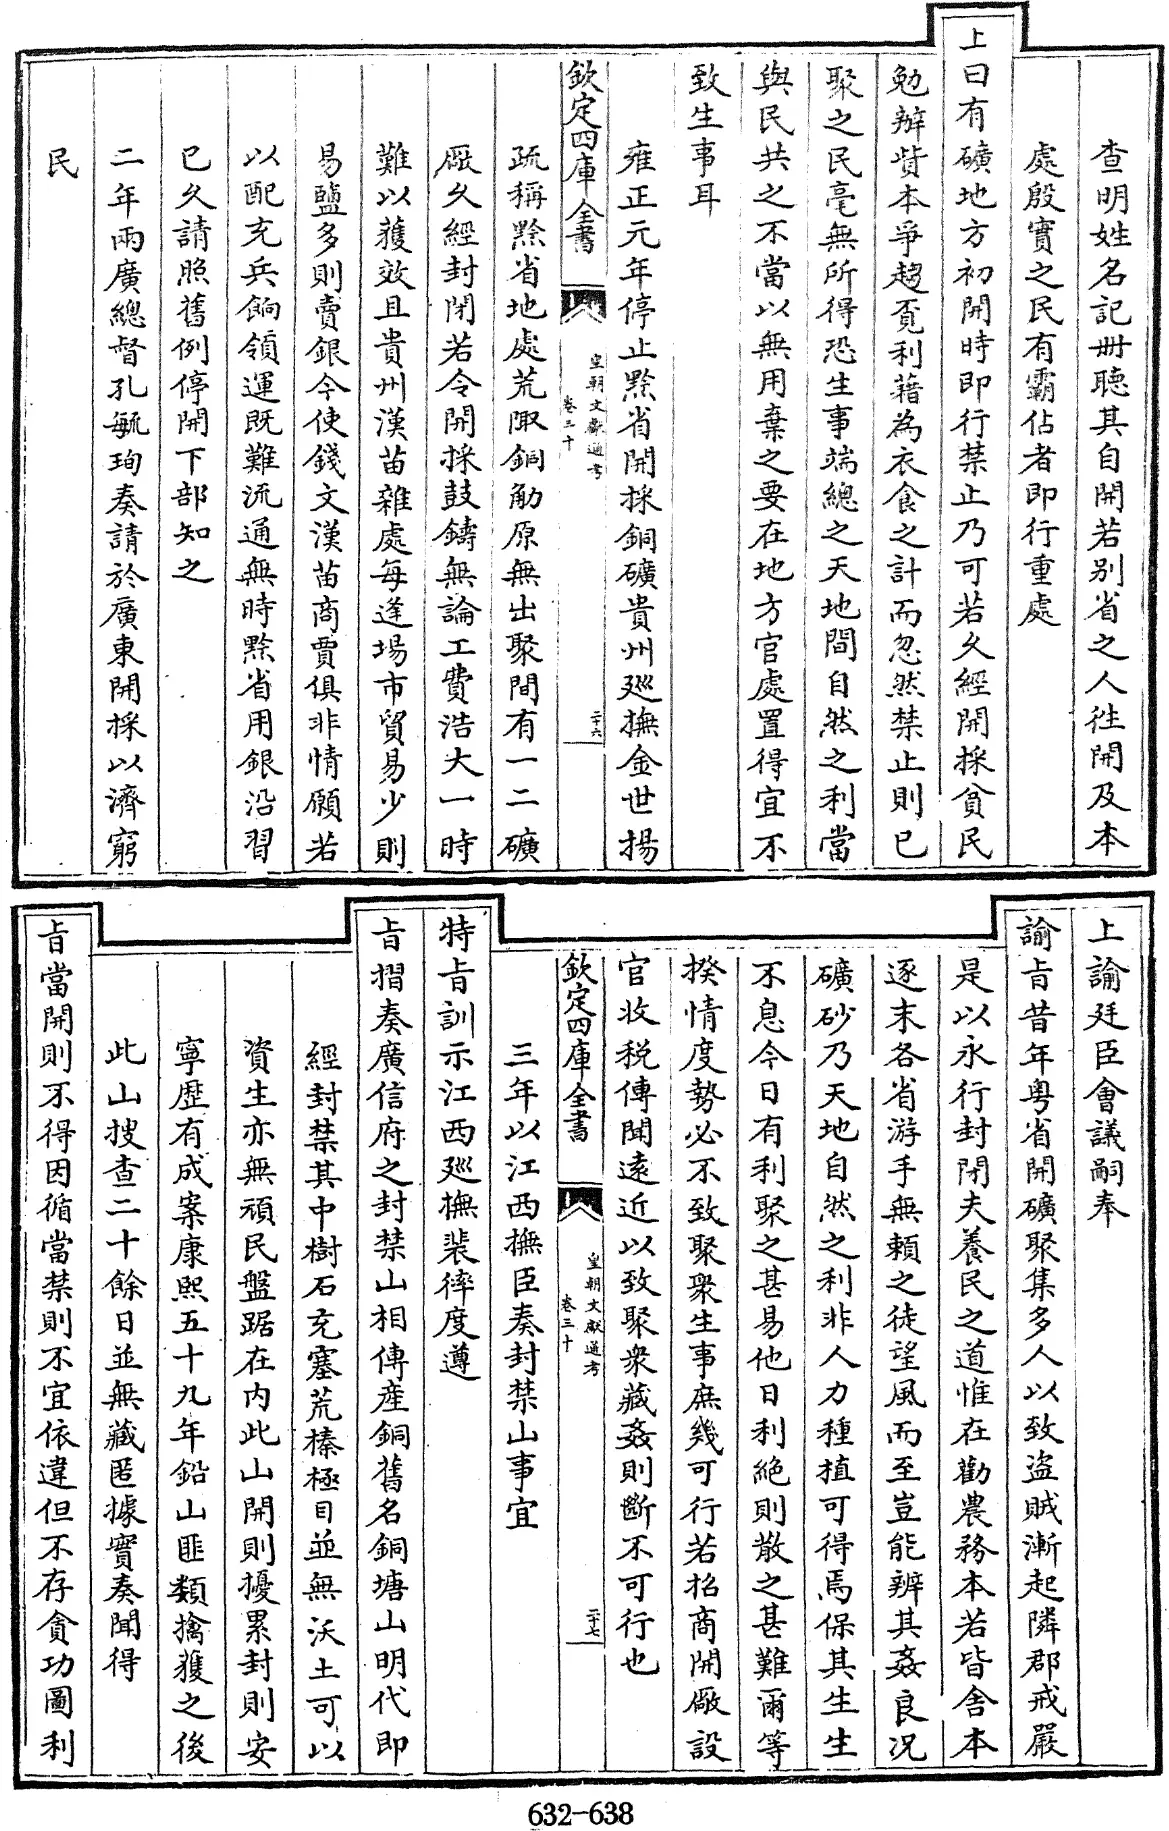 查明姓名記冊聽其自開若別省之人徃開及本
處殷實之民有霸佔者即行重處
上曰有礦地方初開時即行禁止乃可若久經開採貧民
勉辦貲本爭趨覔利藉為衣食之計而忽然禁止則已
聚之民毫無所得恐生事端總之天地間自然之利當
與民共之不當以無用棄之要在地方官處置得宜不
致生事耳
雍正元年停止黔省開採銅礦貴州廵撫金世揚
欽定四庫全書
皇朝文獻通考
卷三十
二十六
疏稱黔省地處荒陬銅觔原無出聚間有一二礦
厰久經封閉若令開採鼓鑄無論工費浩大一時
難以獲效且貴州漢苗雜處每逢場市貿易少則
易鹽多則賣銀今使錢文漢苗商賈俱非情願若
以配充兵餉領運既難流通無時黔省用銀沿習
已久請照舊例停開下部知之
二年兩廣總督孔毓珣奏請於廣東開採以濟窮
民
上諭廷臣會議嗣奉
諭旨昔年粤省開礦聚集多人以致盜賊漸起隣郡戒嚴
是以永行封閉夫養民之道惟在勸農務本若皆舍本
逐末各省游手無賴之徒望風而至豈能辨其姦良况
礦砂乃天地自然之利非人力種植可得焉保其生生
不息今日有利聚之甚易他日利絶則散之甚難爾等
揆情度勢必不致聚衆生事庶幾可行若招商開厰設
官收税傳聞遠近以致聚衆藏姦則斷不可行也
欽定四庫全書
皇朝文獻通考
卷三十
二十七
三年以江西撫臣奏封禁山事宜
特旨訓示江西廵撫裴𢕑度遵
旨摺奏廣信府之封禁山相傳産銅舊名銅塘山明代即
經封禁其中樹石充塞荒榛極目並無沃土可以
資生亦無頑民盤踞在内此山開則擾累封則安
寧歴有成案康熙五十九年鉛山匪類擒獲之後
此山搜查二十餘日並無藏匿據實奏聞得
旨當開則不得因循當禁則不宜依違但不存貪功圖利
632-638